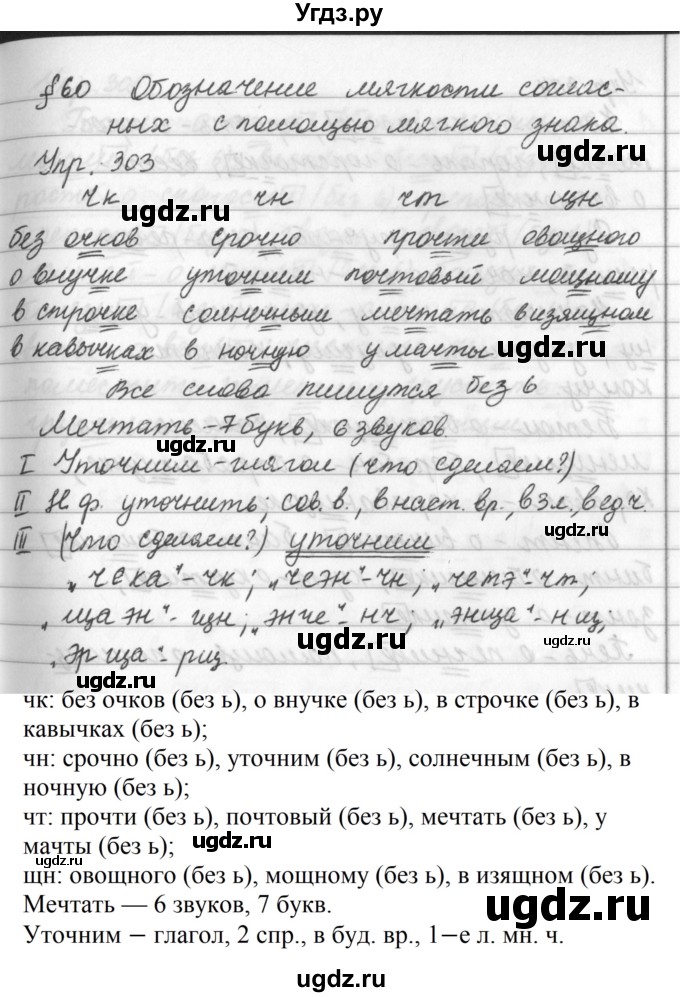 Угдз.ру
§60 Обозначение мягкости соглас-
ных с помощью мягкого знака.
Упр. 303
чк чн чт щн
ugdz.ru ugdz.ru
без очков срочно прочти овощного
о внучке уточним почтовый мощному
в строчке солнечным мечтать в изящном
в кавычках в ночную у мачты
ugdz.ru
Все слова пишутся без ь
Мечтать - 7 букв, 6 звуков
ugdz.ru
I Уточним - глагол (что сделаем?)
II Н.ф. уточнить; сов. в., в наст. вр., в 3 л., в ед. ч.
ugdz.ru
III (Что сделаем?) уточним
„чека" - чк; „чеэн" - чн; „четэ" - чт;
„ща эн" - щн; „энче" - нч; „энща" - нщ;
ugdz.ru
„эр ща" - рщ.
ugdz.ru
чк: без очков (без ь), о внучке (без ь), в строчке (без ь), в
кавычках (без ь);
чн: срочно (без ь), уточним (без ь), солнечным (без ь), в
ночную (без ь);
чт: прочти (без ь), почтовый (без ь), мечтать (без ь), у
ugdz.ru
мачты (без ь);
ugdz.ru
щн: овощного (без ь), мощному (без ь), в изящном (без ь).
Мечтать — 6 звуков, 7 букв.
ugdz.ru
Уточним − глагол, 2 спр., в буд. вр., 1−е л. мн. ч.
ugdz.ru